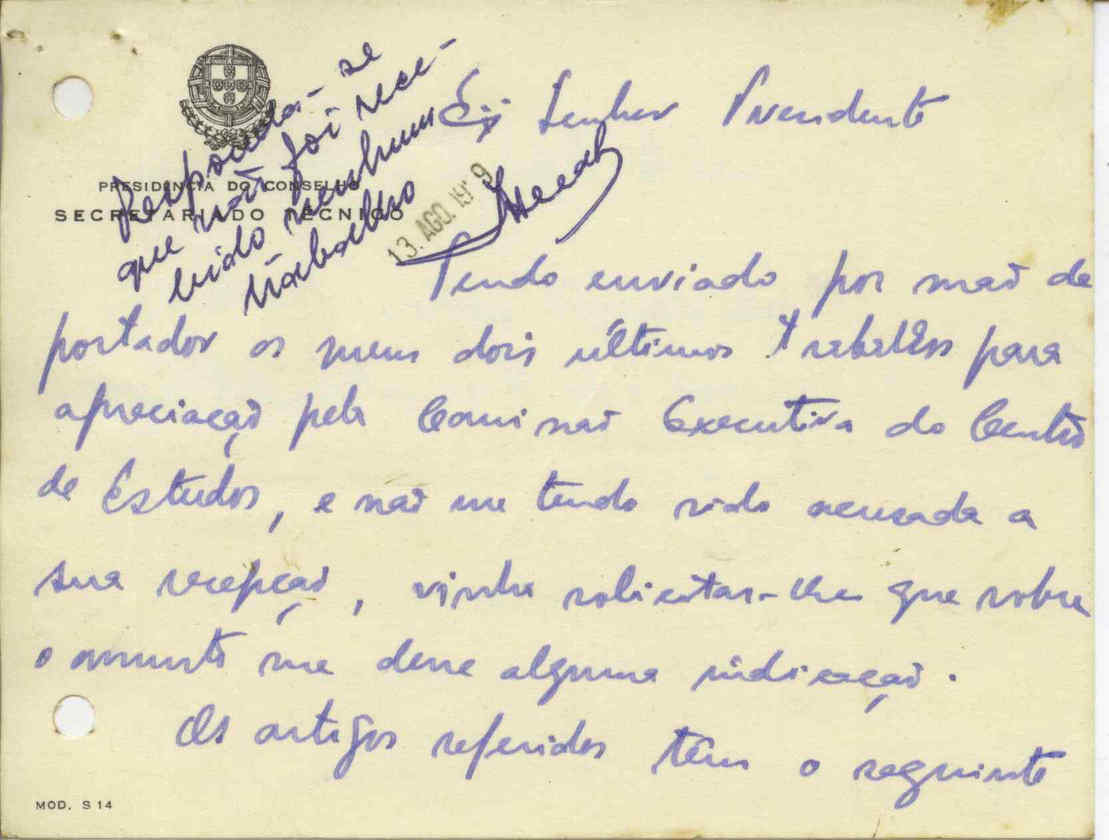 PRESIDÊNCIA DO CONSELHO
SECRETARIADO TÉCNICO
Responda-se
que não foi rece-
bido nenhum
trabalho
13. AGO. 19 9
Senhor Presidente
Tendo enviado por mão de
portador os meus dois últimos trabalhos para
apreciação pela Comissão Executiva do Centro
de Estudos, e não me tendo sido acusada a
sua recepção, vinha solicitar-lhe que sobre
o assunto me desse alguma indicação.
Os artigos referidos têm o seguinte
MOD. S 14